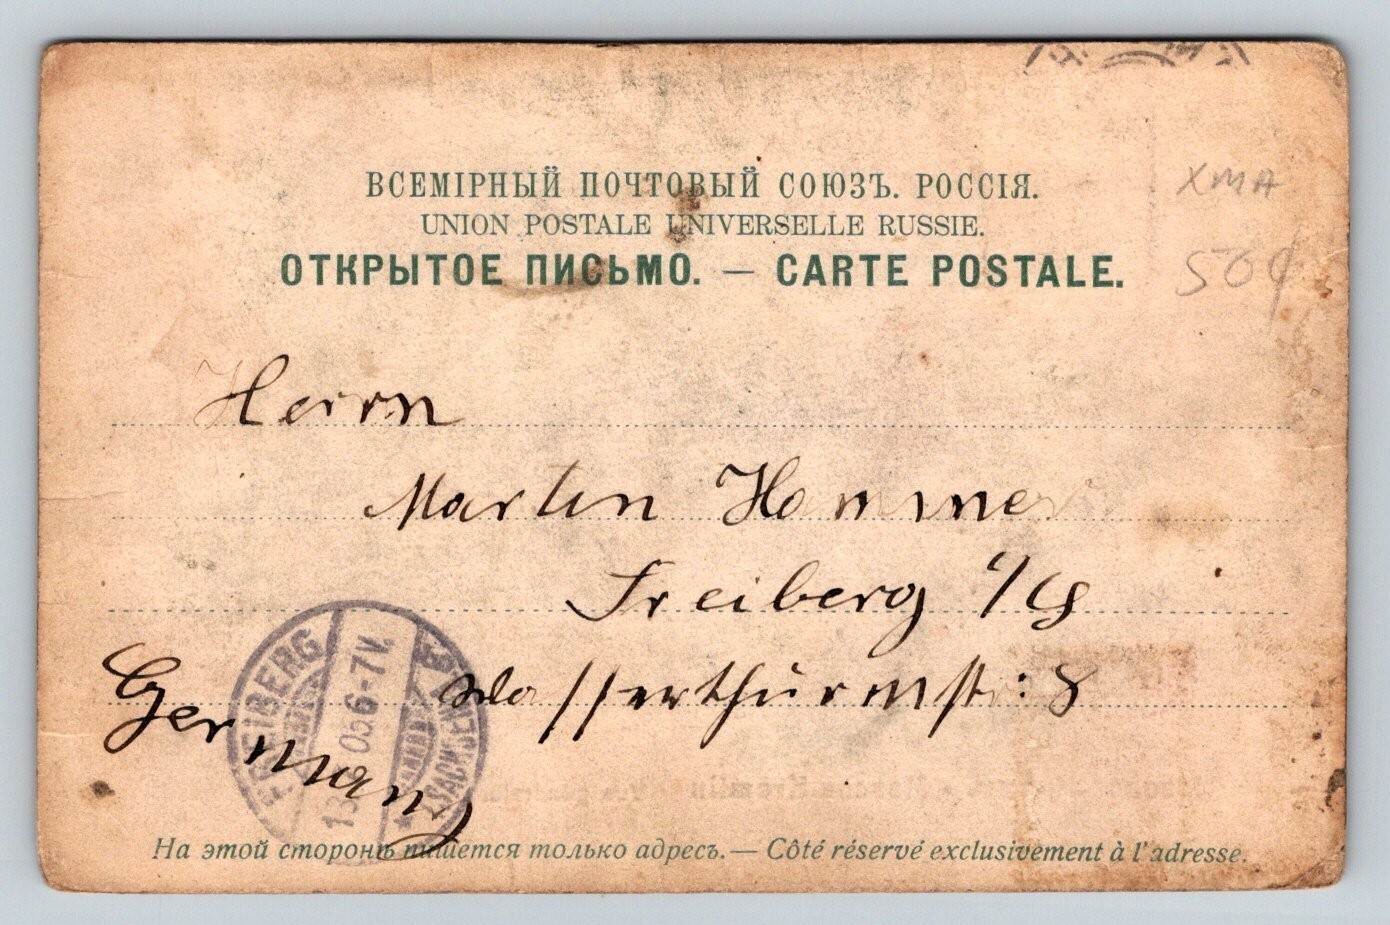 ВСЕМІРНЫЙ ПОЧТОВЫЙ СОЮЗЪ. РОССІЯ.
UNION POSTALE UNIVERSELLE RUSSIE.
ОТКРЫТОЕ ПИСЬМО. — CARTE POSTALE.
XMA
50¢
Herrn
Martin Hammer
Freiberg i/S
Wasserthurmstr: 8
Germany
FREIBERG
13 05 6-7V.
(SACHSEN)
На этой сторонѣ пишется только адресъ. — Côté réservé exclusivement à l'adresse.